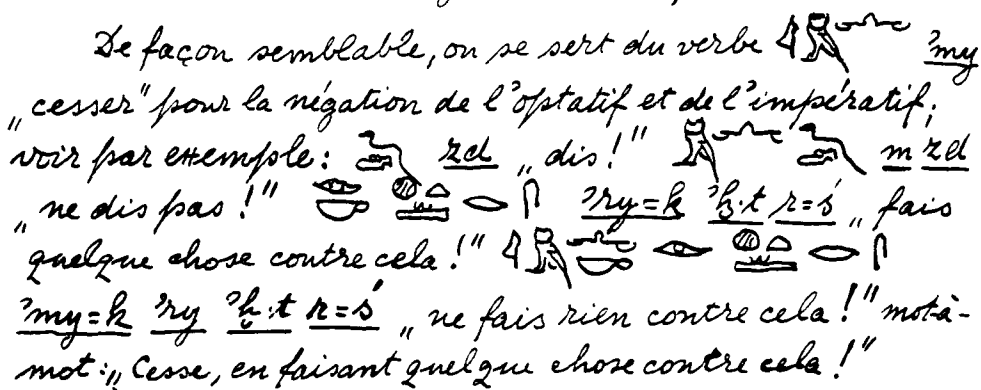 De façon semblable, on se sert du verbe 𓇋𓅓𓂜 ʾmy
„cesser" pour la négation de l'optatif et de l'impératif;
voir par exemple: zd „dis!" m zd
„ne dis pas!" ʾry=k ʾḫ.t r=ś „fais
quelque chose contre cela!"
ʾmy=k ʾry ʾḫ.t r=ś „ne fais rien contre cela!" mot-à-
mot: „Cesse, en faisant quelque chose contre cela!"